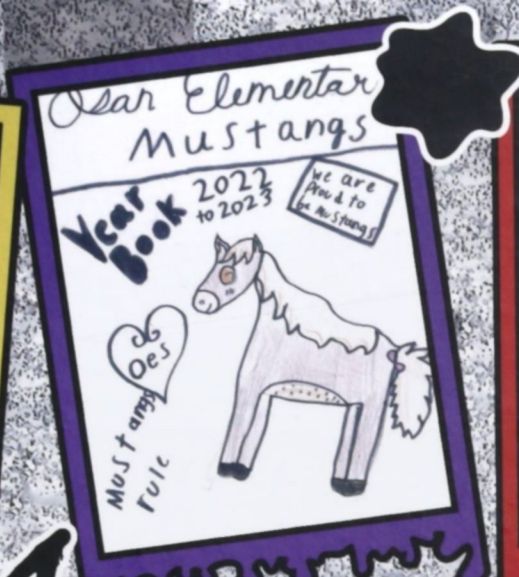 Osan Elementar
Mustangs
Year
Book
2022
to 2023
we are
Proud to
be Mustangs
Oes
Mustangs
rule